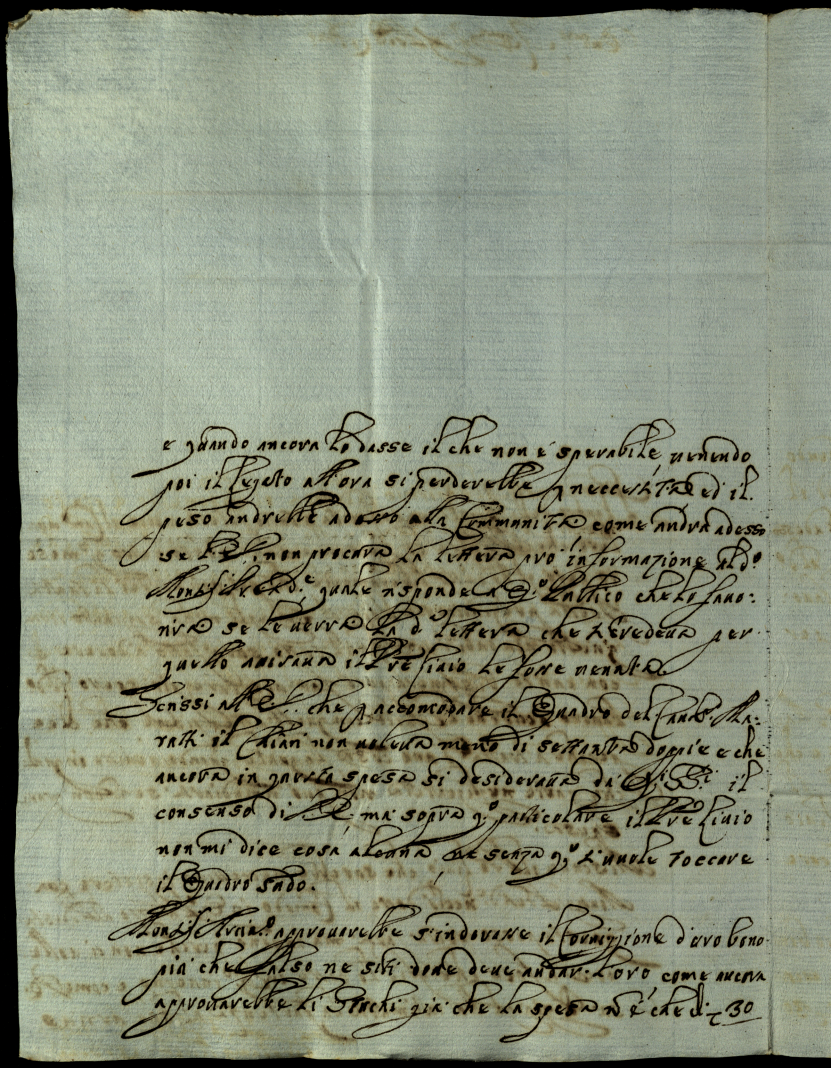 e quando ancora lo dasse il che non è sperabile, venendo
poi il legato allora si perderebbe p necces.tà ed il
peso andrebbe adosso alla Communità come andrà adesso
se non procura la lettera pro informazione al d.o
Mons.r quale risponde a q.o Publico che lo favo:
rirà se le verrà la d.a lettera che credeva per
quello avisava il Pre Livio le fosse venuta.
Scrissi a che p accomodare il Quadro del Cav.r Ma:
ratti il Chiari non voleva meno di settanta doppie e che
ancora in questa spesa si desiderava da il
consenso di ma sopra q.o particolare il Pre Livio
non mi dice cosa alcuna ne senza q.o si vuole toccare
il Quadro sudo.
Mons.r approvarebbe s'indorasse il Cornigione d'oro bono
più che falso ne siti dove deve andar l'oro come ancora
approvarebbe li Stuchi già che la spesa nò è che di 30